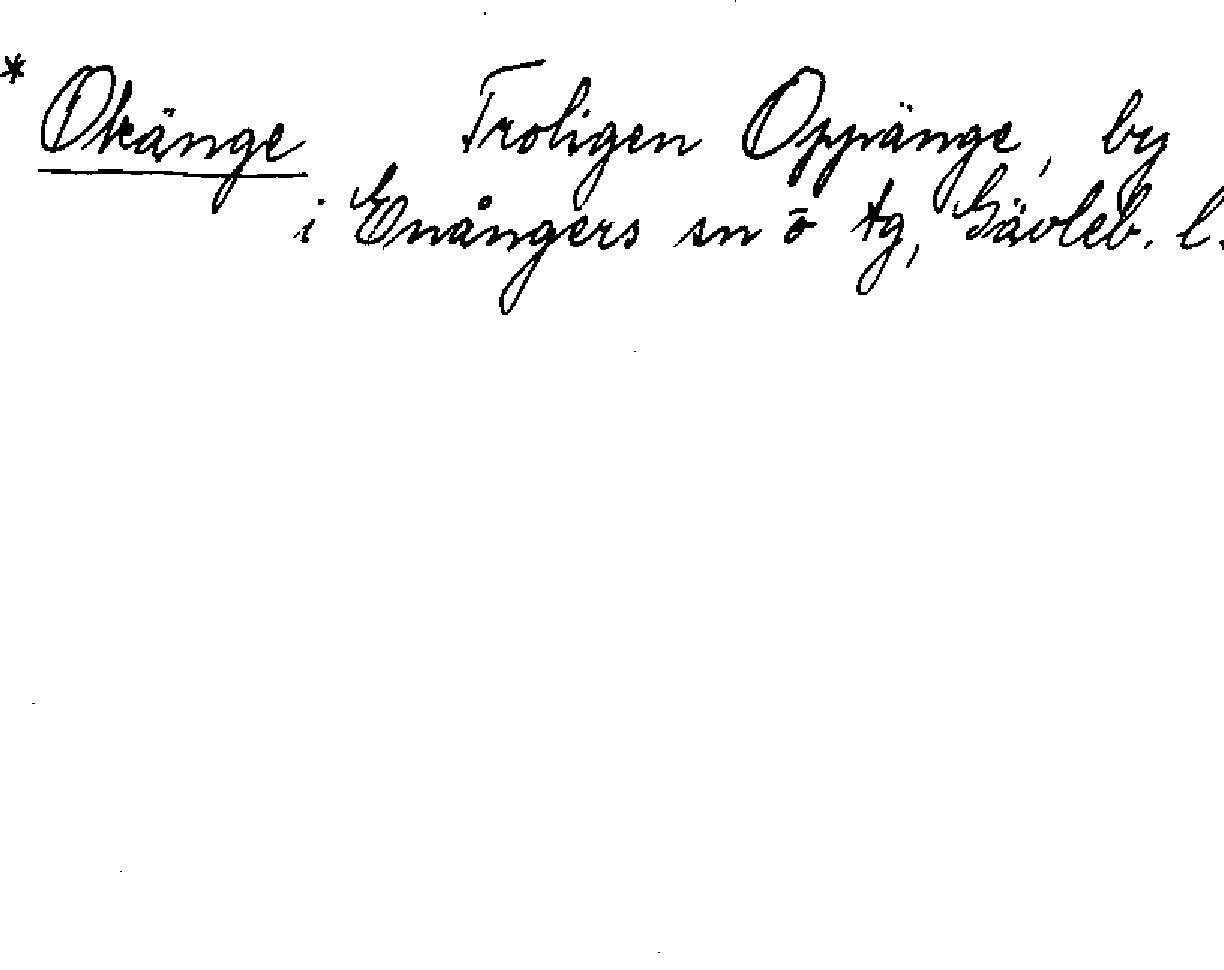 * Okänge Troligen Oppänge, by
i Enångers sn ö tg, Gävleb. l.